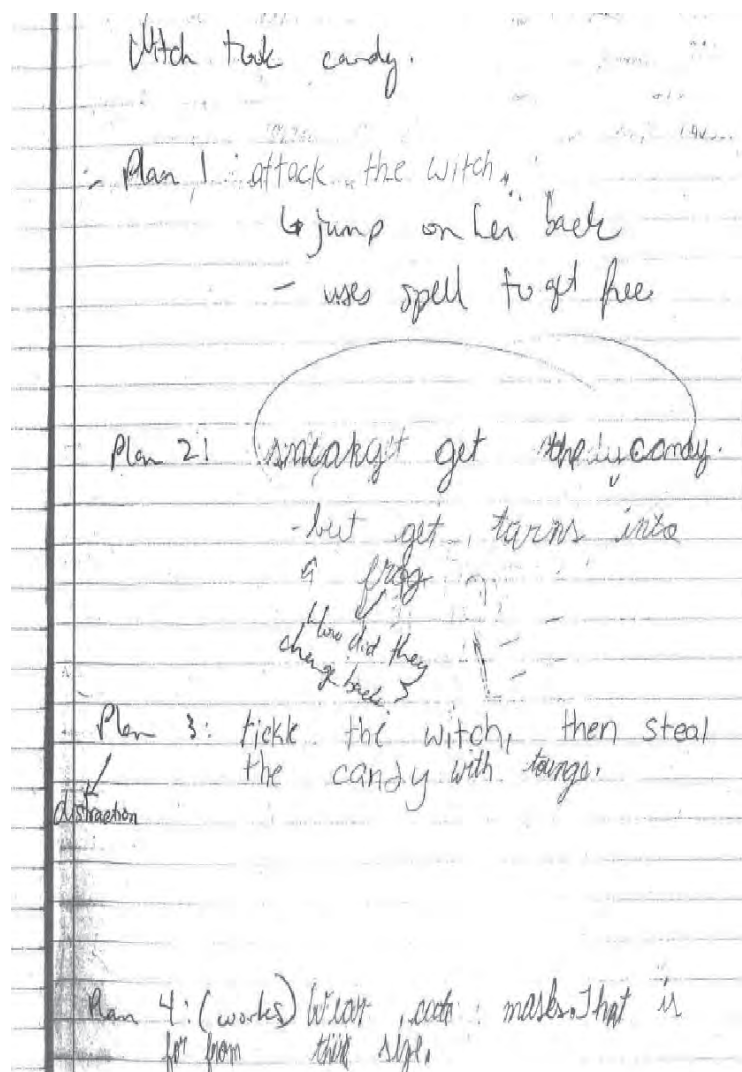 Witch took candy.
- Plan 1: attack the witch.
↳ jump on her back
- uses spell to get free
Plan 2: get candy.
- but get turns into
a frog
How did they
change back?
Plan 3: tickle the witch, then steal
the candy with tounge.
distraction
Plan 4: (works) Wear masks. That is
their size.